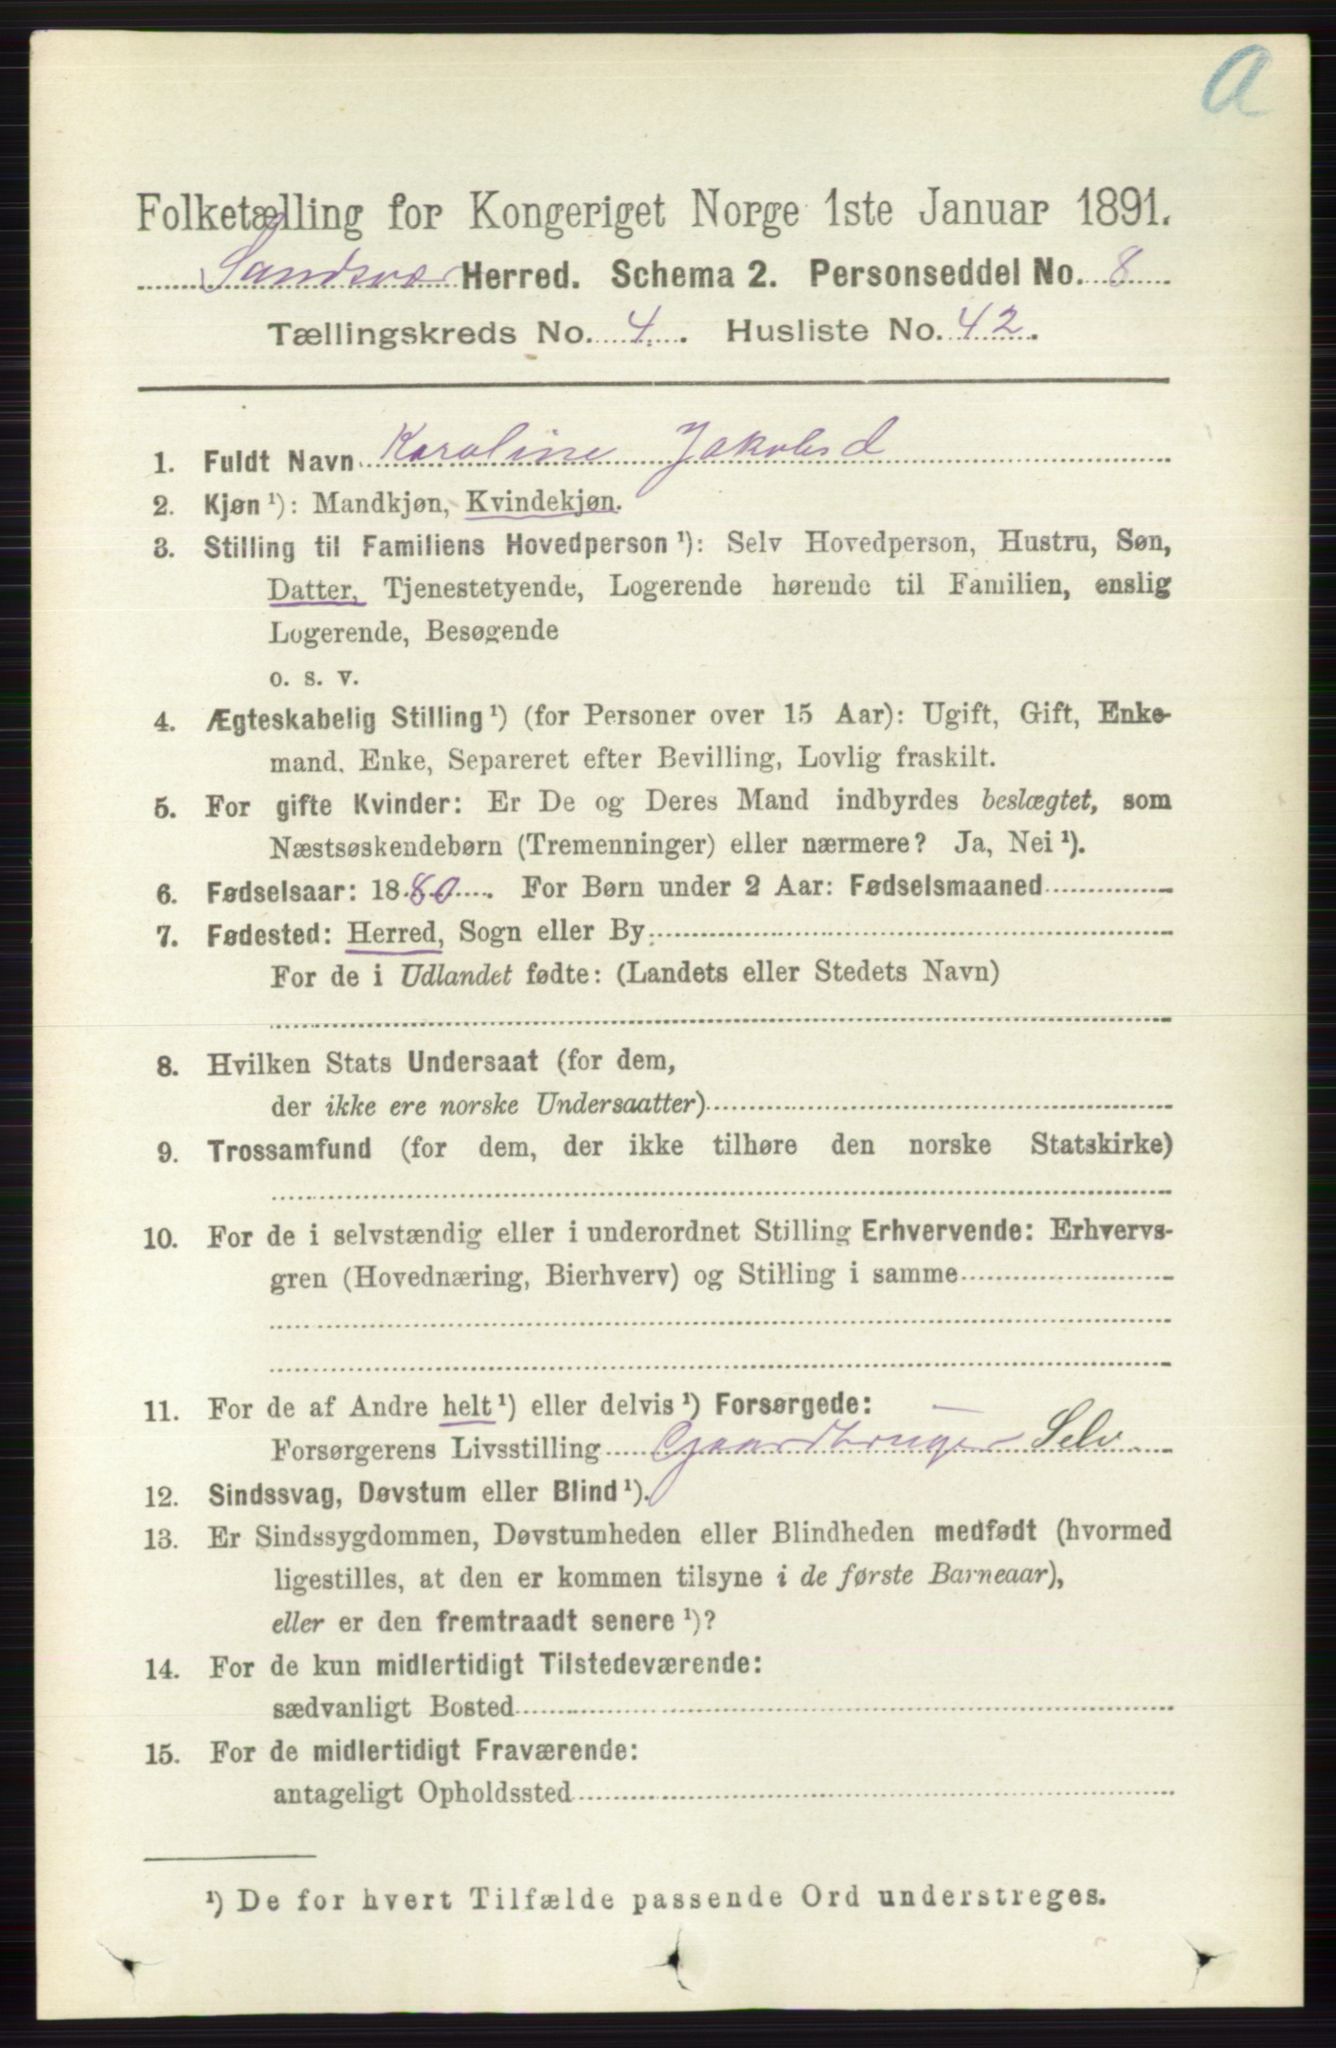 a
Folketælling for Kongeriget Norge 1ste Januar 1891.
Sandsvær Herred. Schema 2. Personseddel No. 8
Tællingskreds No. 4. Husliste No. 42.
1. Fuldt Navn Karoline Jakobsd
2. Kjøn ¹): Mandkjøn, Kvindekjøn.
3. Stilling til Familiens Hovedperson ¹): Selv Hovedperson, Hustru, Søn,
Datter, Tjenestetyende, Logerende hørende til Familien, enslig
Logerende, Besøgende
o. s. v.
4. Ægteskabelig Stilling ¹) (for Personer over 15 Aar): Ugift, Gift, Enke-
mand, Enke, Separeret efter Bevilling, Lovlig fraskilt.
5. For gifte Kvinder: Er De og Deres Mand indbyrdes beslægtet, som
Næstsøskendebørn (Tremenninger) eller nærmere? Ja, Nei ¹).
6. Fødselsaar: 1880. For Børn under 2 Aar: Fødselsmaaned
7. Fødested: Herred, Sogn eller By
For de i Udlandet fødte: (Landets eller Stedets Navn)
8. Hvilken Stats Undersaat (for dem,
der ikke ere norske Undersaatter)
9. Trossamfund (for dem, der ikke tilhøre den norske Statskirke)
10. For de i selvstændig eller i underordnet Stilling Erhvervende: Erhvervs-
gren (Hovednæring, Bierhverv) og Stilling i samme
11. For de af Andre helt ¹) eller delvis ¹) Forsørgede:
Forsørgerens Livsstilling Gaardbruger Selv
12. Sindssvag, Døvstum eller Blind ¹).
13. Er Sindssygdommen, Døvstumheden eller Blindheden medfødt (hvormed
ligestilles, at den er kommen tilsyne i de første Barneaar),
eller er den fremtraadt senere ¹)?
14. For de kun midlertidigt Tilstedeværende:
sædvanligt Bosted
15. For de midlertidigt Fraværende:
antageligt Opholdssted
¹) De for hvert Tilfælde passende Ord understreges.